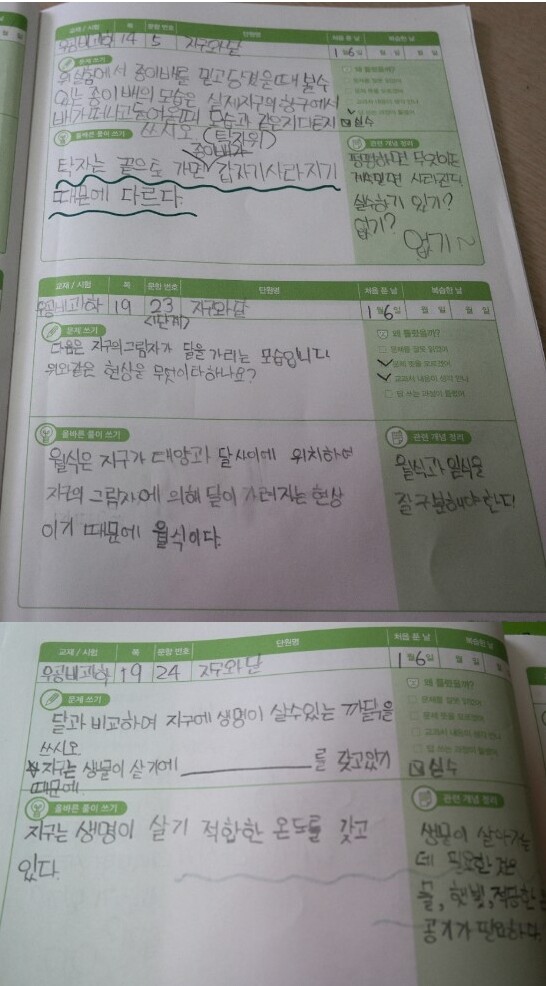 교재 / 시험 쪽 문항 번호 단원명 처음 푼 날 복습한 날
우공비과학 14 5 지구와달 1월6일 월 일 월 일
문제 쓰기 왜 틀렸을까?
위 실험에서 종이배를 밀고 당겼을때 볼수
있는 종이배의 모습은 실제지구의 항구에서
배가 떠나고 들어올때 모습과 같은지 다른지 실수
쓰시오 (탁자위)
올바른 풀이 쓰기 관련 개념 정리
종이배가
탁자는 끝으로 가면 갑자기사라지기
때문에 다르다.
평평하면
사라진다
실수하기 있기?
없기?
없기~
교재 / 시험 쪽 문항 번호 단원명 처음 푼 날 복습한 날
우공비과학 19 23 지구와달 1월6일 월 일 월 일
<1단계>
문제 쓰기 왜 틀렸을까?
다음은 지구의그림자가 달을 가리는 모습입니다 문제를 잘못 읽었어
위와같은 현상을 무엇이라하나요? 문제 뜻을 모르겠어
교과서 내용이 생각 안나
답 쓰는 과정이 틀렸어
올바른 풀이 쓰기 관련 개념 정리
월식은 지구가 태양과 달사이에 위치하여
지구의 그림자에 의해 달이 가려지는 현상
이기 때문에 월식이다.
월식과 일식을
잘구분해야한다
교재 / 시험 쪽 문항 번호 단원명 처음 푼 날 복습한 날
우공비과학 19 24 지구와달 1월6일 월 일 월
문제 쓰기 왜 틀렸을까?
달과 비교하여 지구에 생명이 살수있는 까닭을 문제를 잘못 읽었어
쓰시오 문제 뜻을 모르겠어
교과서 내용이 생각 안나
답 쓰는 과정이 틀렸어
지구는 생물이 살기에 를 갖고있기 실수
때문에
올바른 풀이 쓰기 관련 개념 정리
지구는 생명이 살기 적합한 온도를 갖고
있다.
생물이 살아가는
데 필요한것은
물, 햇빛, 적당한
공기가 필요하다.